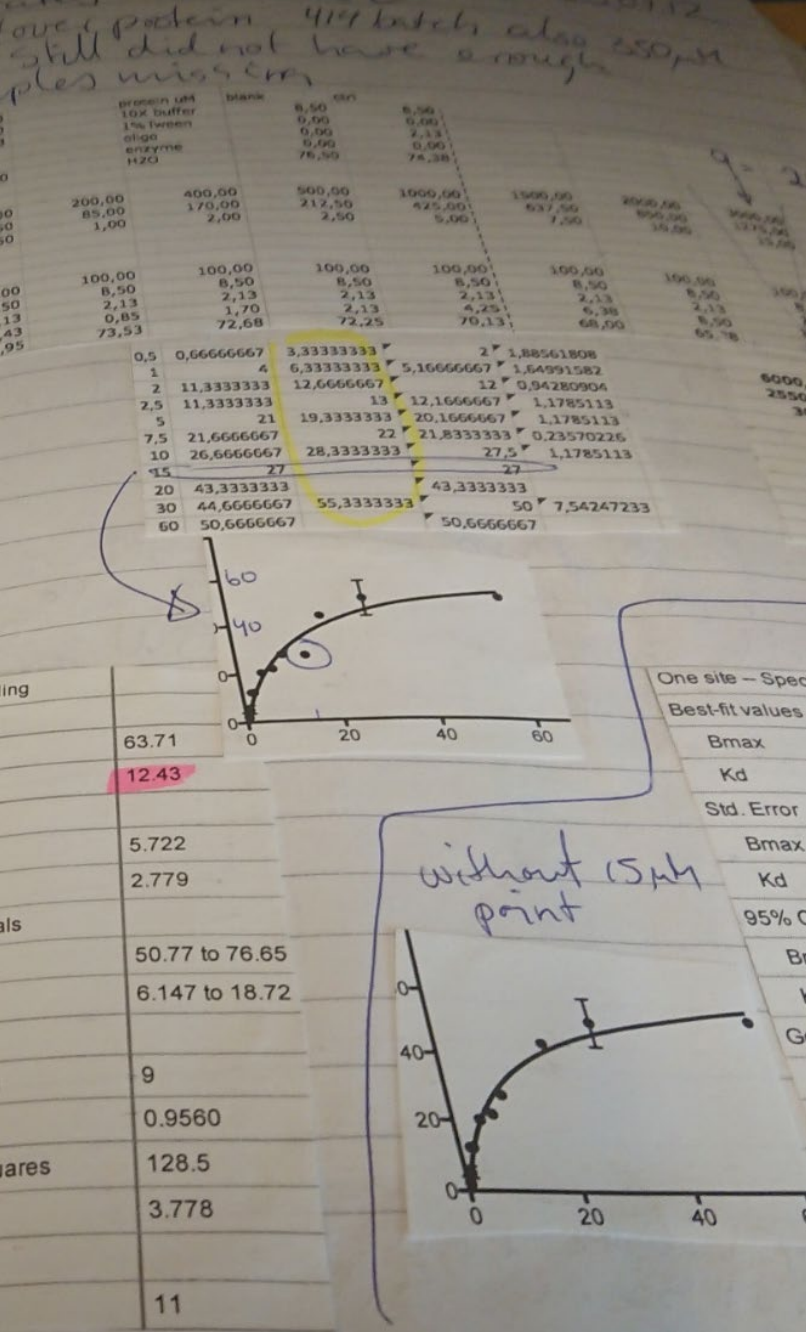 over protein, 414 batch also 350 µM
still did not have enough
protein uM blank
10x buffer 8,50 8,50
1% Tween 0,00 0,00
oligo 0,00 2,13
enzyme 0,00 0,00
H2O 76,50 74,38
200,00 400,00 500,00 1000,00 1500,00 2000,00
85,00 170,00 212,50 425,00 637,50
1,00 2,00 2,50 5,00 7,50 10,00
100,00 100,00 100,00 100,00 100,00 100,00
8,50 8,50 8,50 8,50 8,50 8,50
2,13 2,13 2,13 2,13 2,13 2,13
0,85 1,70 2,13 4,25 6,38 8,50
73,53 72,68 72,25 70,13 68,00
0,5 0,66666667 3,33333333 2 1,88561808
1 4 6,33333333 5,16666667 1,64991582
2 11,3333333 12,6666667 12 0,94280904
2,5 11,3333333 13 12,1666667 1,1785113
5 21 19,3333333 20,1666667 1,1785113
7,5 21,6666667 22 21,8333333 0,23570226
10 26,6666667 28,3333333 27,5 1,1785113
15 27 27
20 43,3333333 43,3333333
30 44,6666667 55,3333333 50 7,54247233
60 50,6666667 50,6666667
6000,
2550
60
40
0
0
0 20 40 60
ing
63.71
12.43
5.722
2.779
als
50.77 to 76.65
6.147 to 18.72
9
0.9560
ares 128.5
3.778
11
One site – Spec
Best-fit values
Bmax
Kd
Std. Error
Bmax
Kd
95% C
without 15 µM
point
0
40
20
0
0 20 40